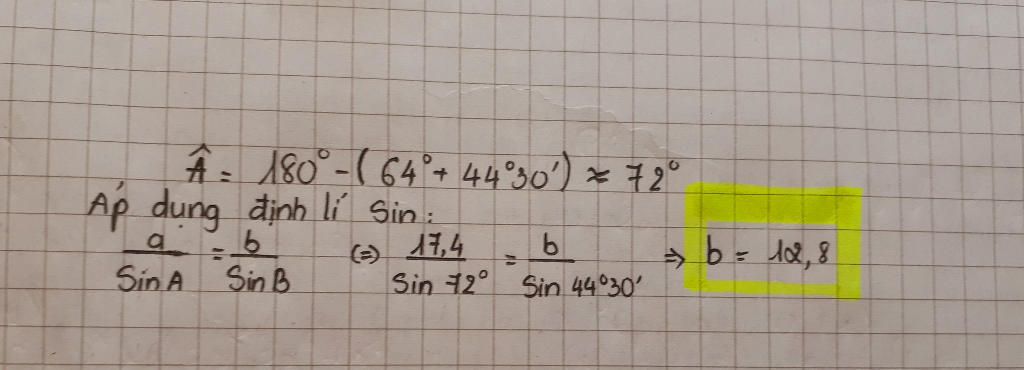 Â = 180° - ( 64° + 44°30' ) ≈ 72°
Áp dụng định lí Sin:
a/SinA = b/SinB (=) 17,4/Sin 72° = b/Sin 44°30' => b = 12,8